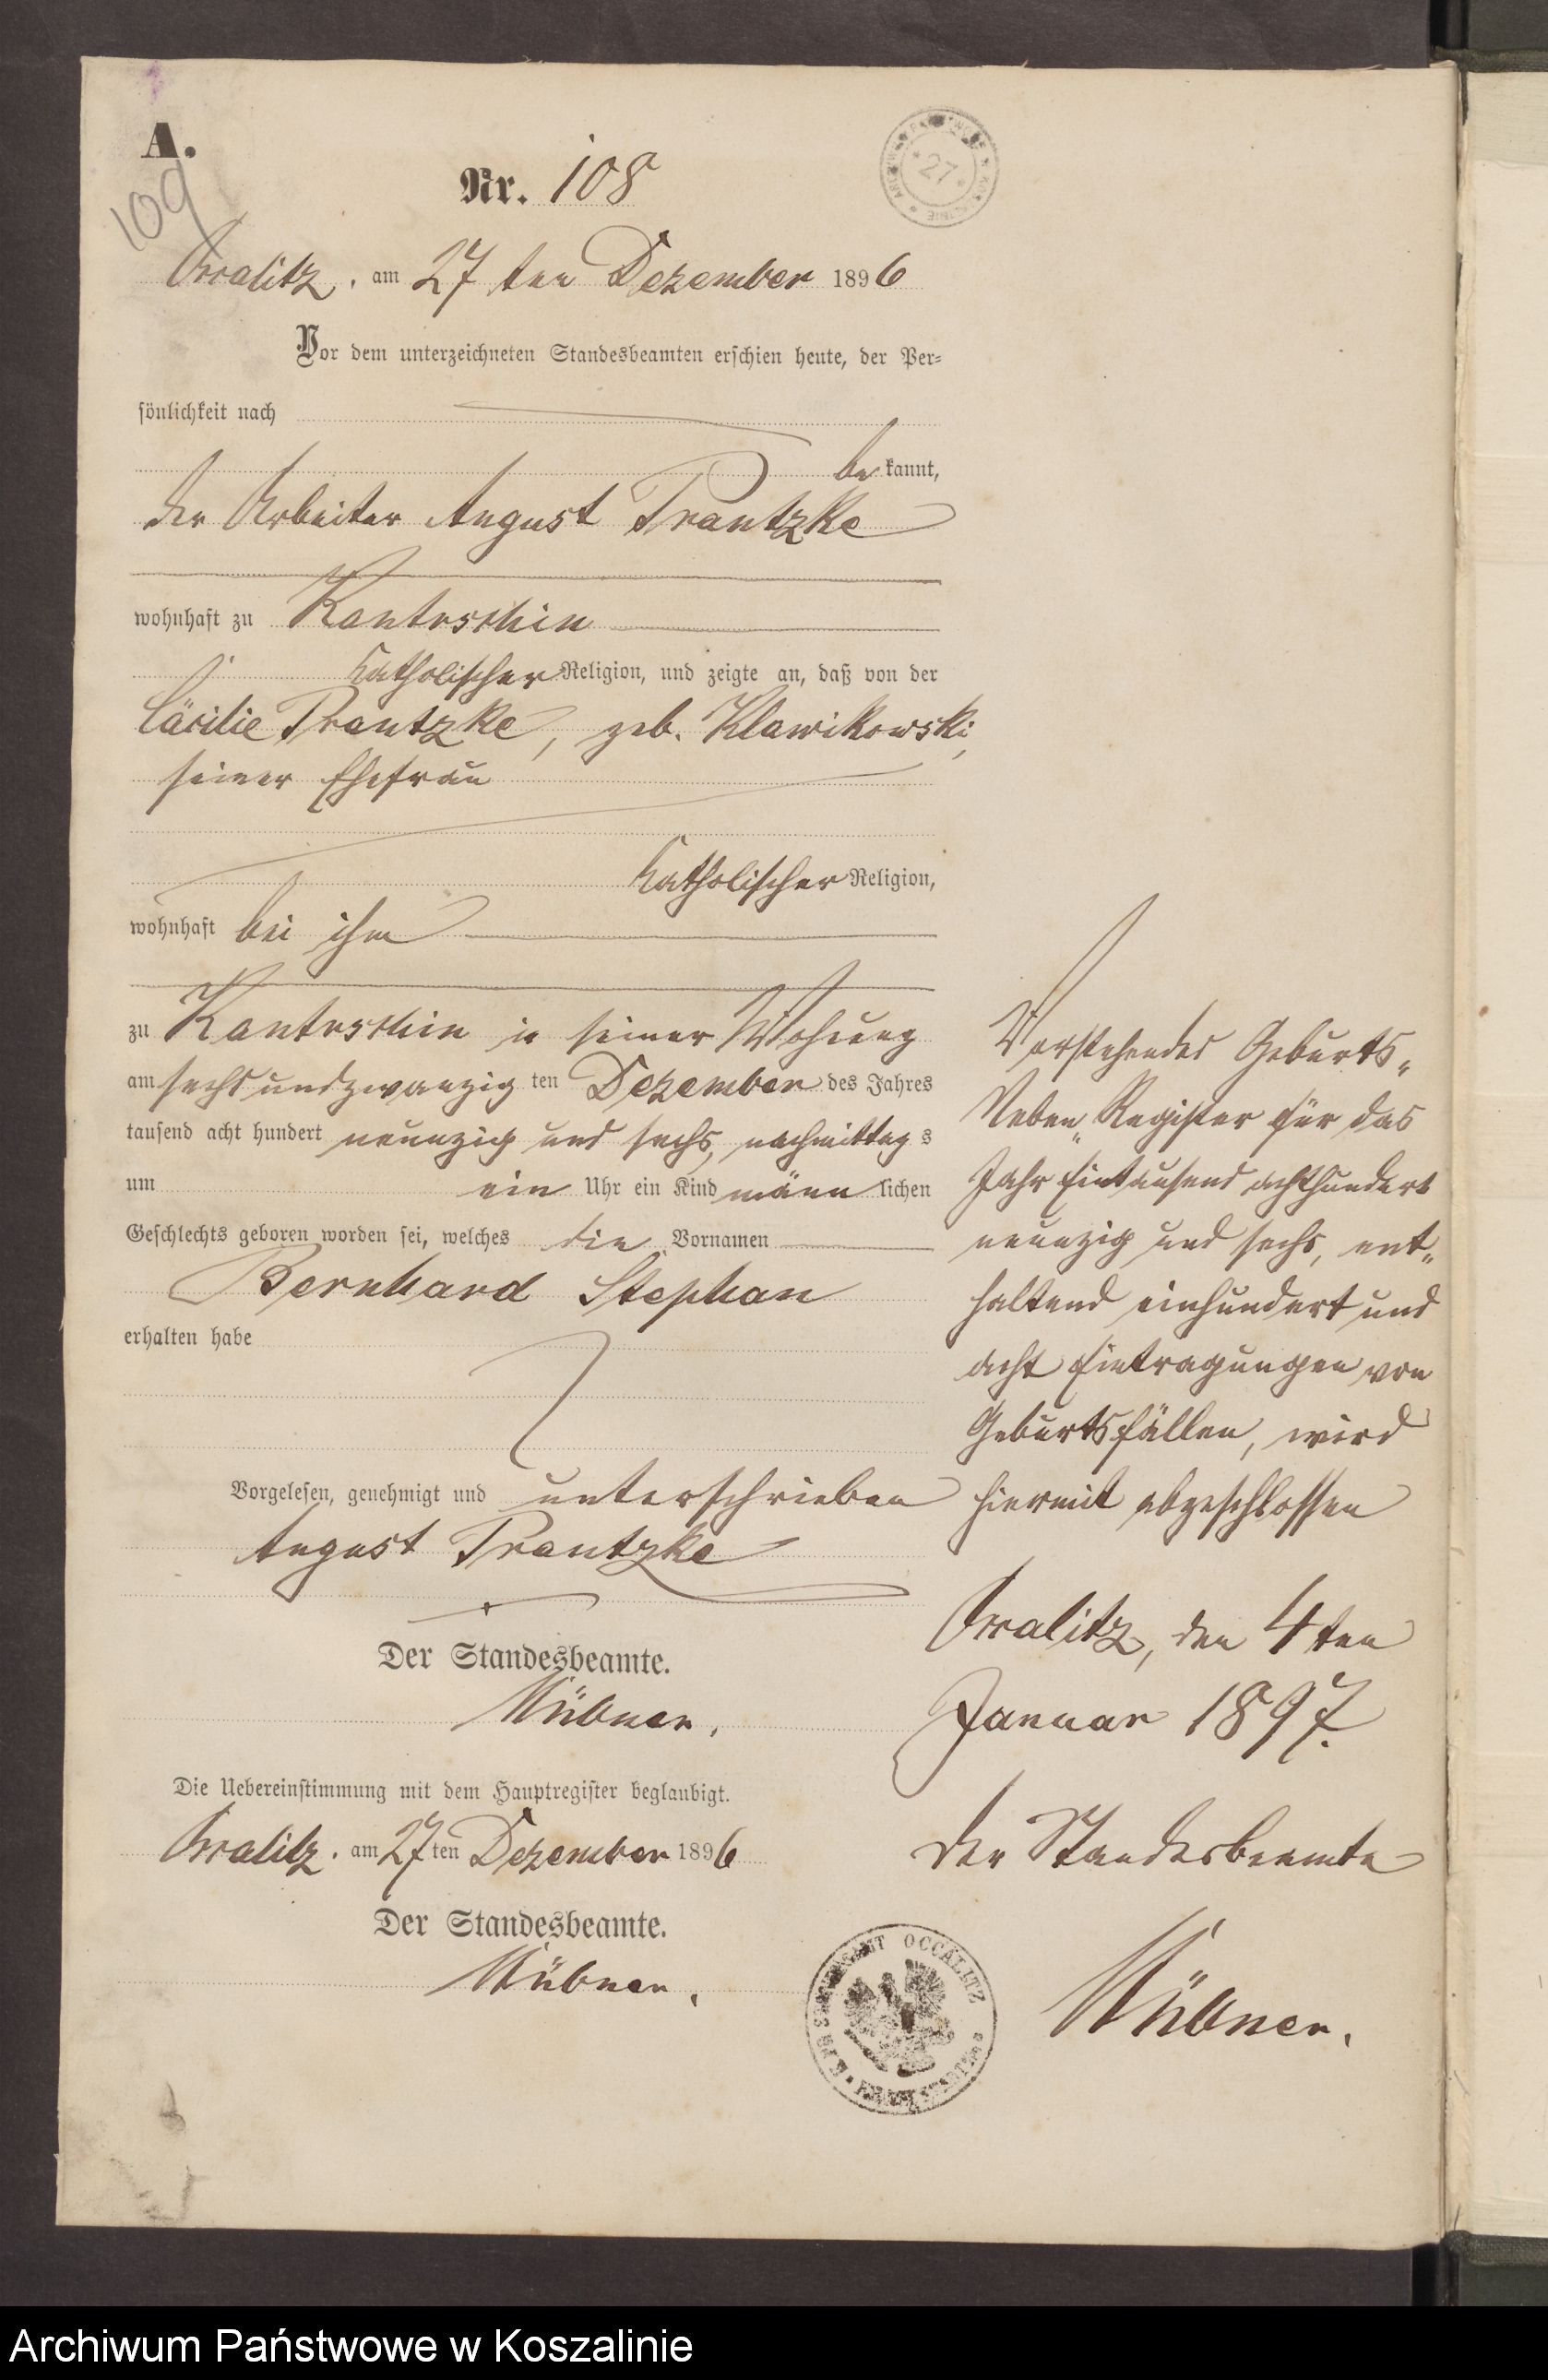 A.
109
Nr. 108
27
Occalitz, am 27 ten Dezember 1896
Vor dem unterzeichneten Standesbeamten erschien heute, der Per-
sönlichkeit nach
be kannt,
der Arbeiter August Prantzke
wohnhaft zu Kantrschin
katholischer Religion, und zeigte an, daß von der
Cäcilie Prantzke, geb. Klawikowski,
seiner Ehefrau
katholischer Religion,
wohnhaft bei ihm
zu Kantrschin in seiner Wohnung
am sechsundzwanzig ten Dezember des Jahres
tausend acht hundert neunzig und sechs, nachmittag s
um ein Uhr ein Kind männ lichen
Geschlechts geboren worden sei, welches die Vornamen
Bernhard Stephan
erhalten habe
Vorgelesen, genehmigt und unterschrieben
August Prantzke
Der Standesbeamte.
Die Uebereinstimmung mit dem Hauptregister beglaubigt.
Occalitz, am 27 ten Dezember 1896
Der Standesbeamte.
Vorstehendes Geburts-
Neben-Register für das
Jahr Eintausend achthundert
neunzig und sechs, ent-
haltend einhundert und
acht Eintragungen von
Geburtsfällen, wird
hiermit abgeschlossen
Occalitz, den 4ten
Januar 1897.
Der Standesbeamte
STANDESAMT OCCALITZ
Archiwum Państwowe w Koszalinie